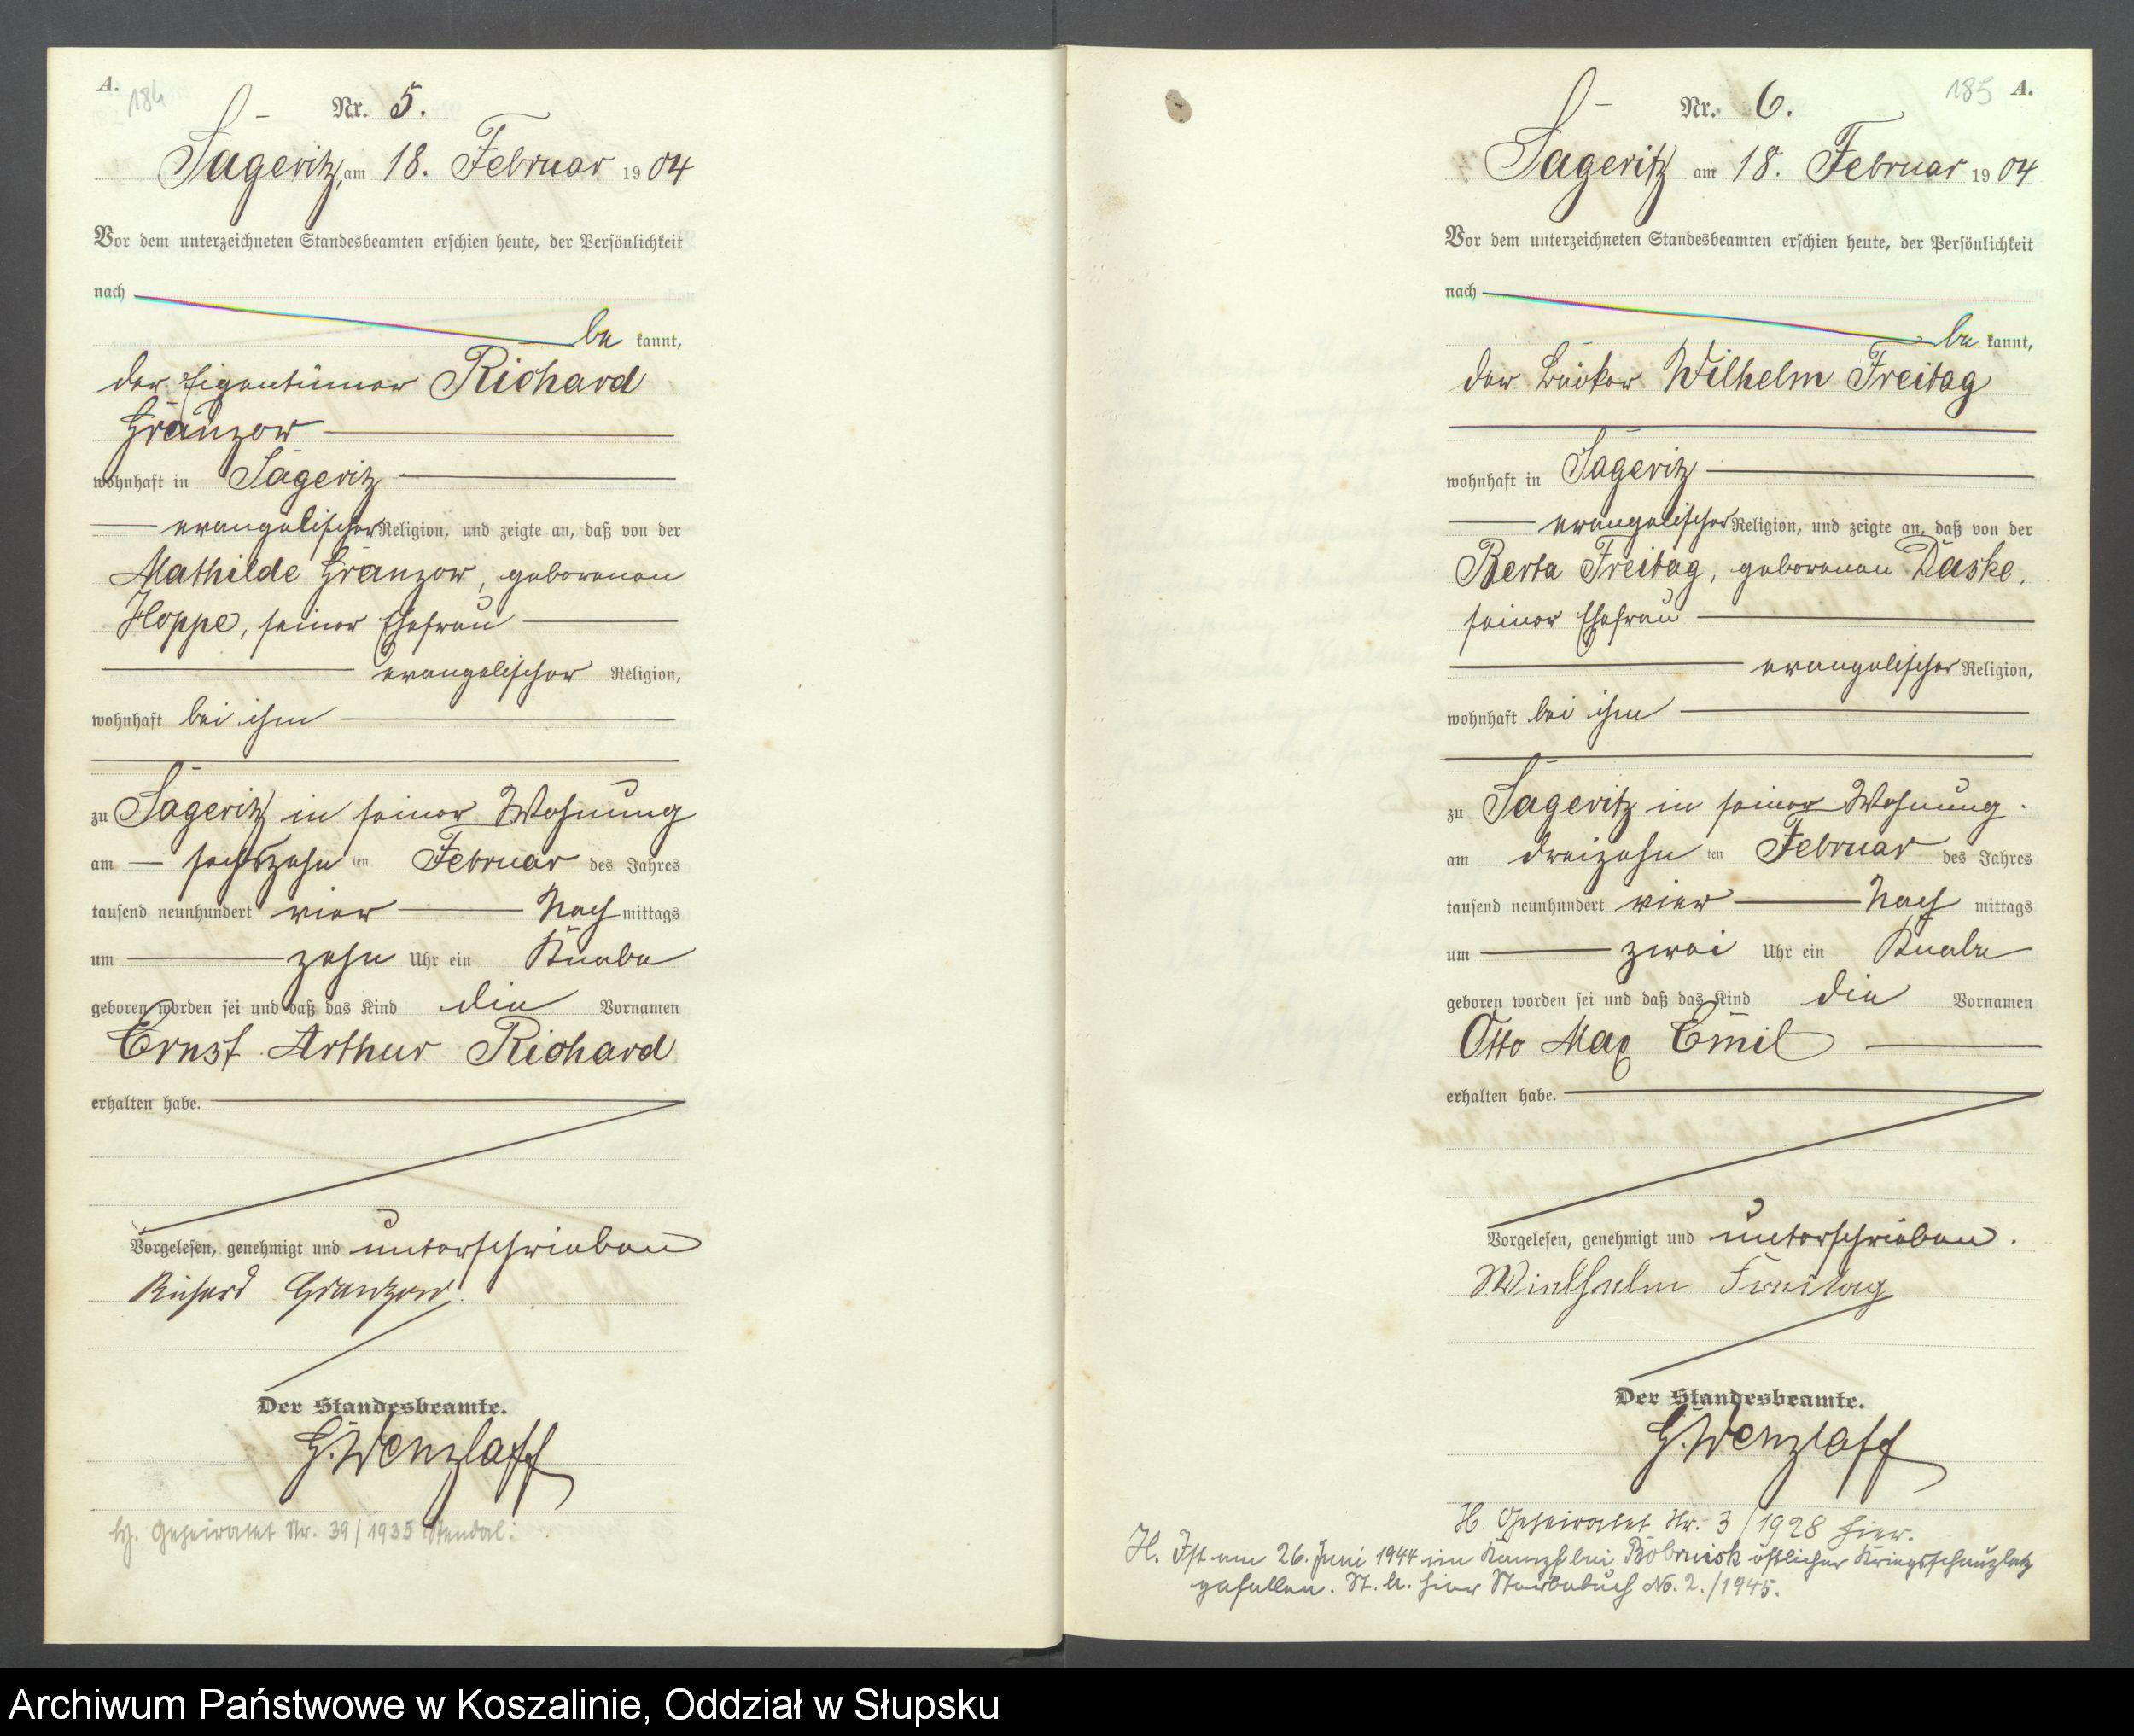 A.
184
Nr. 5.
Sageritz, am 18. Februar 1904
Vor dem unterzeichneten Standesbeamten erschien heute, der Persönlichkeit
nach
be kannt,
der Eigentümer Richard
Granzow
wohnhaft in Sageritz
evangelischer Religion, und zeigte an, daß von der
Mathilde Granzow, geborenen
Hoppe, seiner Ehefrau
evangelischer Religion,
wohnhaft bei ihm
zu Sageritz in seiner Wohnung
am sechszehn ten Februar des Jahres
tausend neunhundert vier Nach mittags
um zehn Uhr ein Knabe
geboren worden sei und daß das Kind die Vornamen
Ernst Arthur Richard
erhalten habe.
Vorgelesen, genehmigt und unterschrieben
Richard Granzow.
Der Standesbeamte.
G. Wenzlaff
H. Geheiratet Nr. 39/1935 Stendal.
185 A.
Nr. 6.
Sageritz am 18. Februar 1904
Vor dem unterzeichneten Standesbeamten erschien heute, der Persönlichkeit
nach
be kannt,
der Wilhelm Freitag
wohnhaft in Sageritz
evangelischer Religion, und zeigte an, daß von der
Berta Freitag, geborenen Daske,
seiner Ehefrau
evangelischer Religion,
wohnhaft bei ihm
zu Sageritz in seiner Wohnung
am dreizehn ten Februar des Jahres
tausend neunhundert vier Nach mittags
um zwei Uhr ein Knabe
geboren worden sei und daß das Kind die Vornamen
Otto Max Emil
erhalten habe.
Vorgelesen, genehmigt und unterschrieben.
Wielhelm Freitag
Der Standesbeamte.
G. Wenzlaff
H. Geheiratet Nr. 3/1928 hier.
H. Ist am 26. Juni 1944 im Kampf bei Bobruisk östlicher Kriegsschauplatz
gefallen. St. A. hier Sterbebuch No. 2./1945.
Archiwum Państwowe w Koszalinie, Oddział w Słupsku